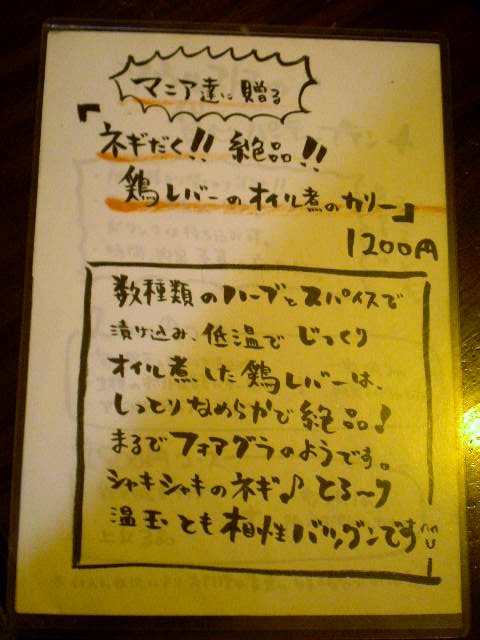 マニア達に贈る
「ネギだく!! 絶品!!
鶏レバーのオイル煮のカリー」
1200円
数種類のハーブとスパイスで
漬け込み、低温でじっくり
オイル煮した鶏レバーは、
しっとりなめらかで絶品!
まるでフォアグラのようです。
シャキシャキのネギ♪とろ〜り
温玉とも相性バツグンです